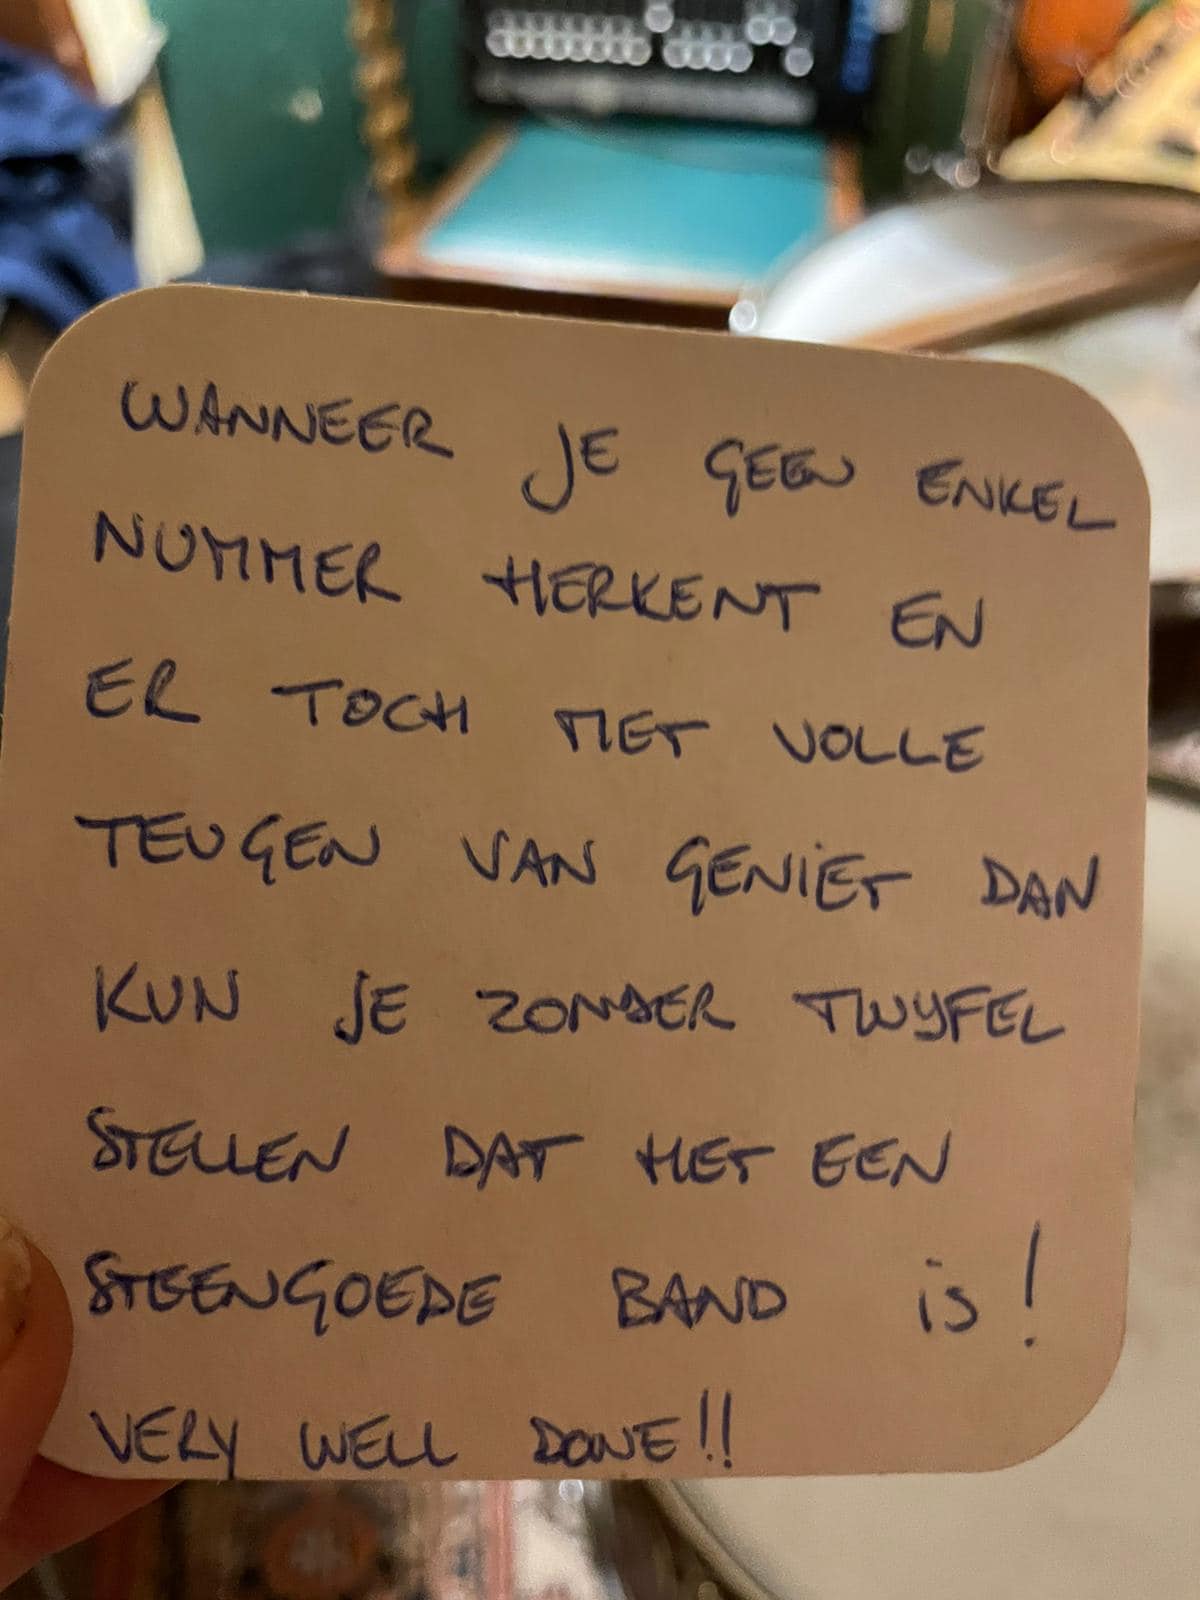 WANNEER JE GEEN ENKEL
NUMMER HERKENT EN
ER TOCH MET VOLLE
TEUGEN VAN GENIET DAN
KUN JE ZONDER TWYFEL
STELLEN DAT HET EEN
STEENGOEDE BAND is!
VERY WELL DONE!!